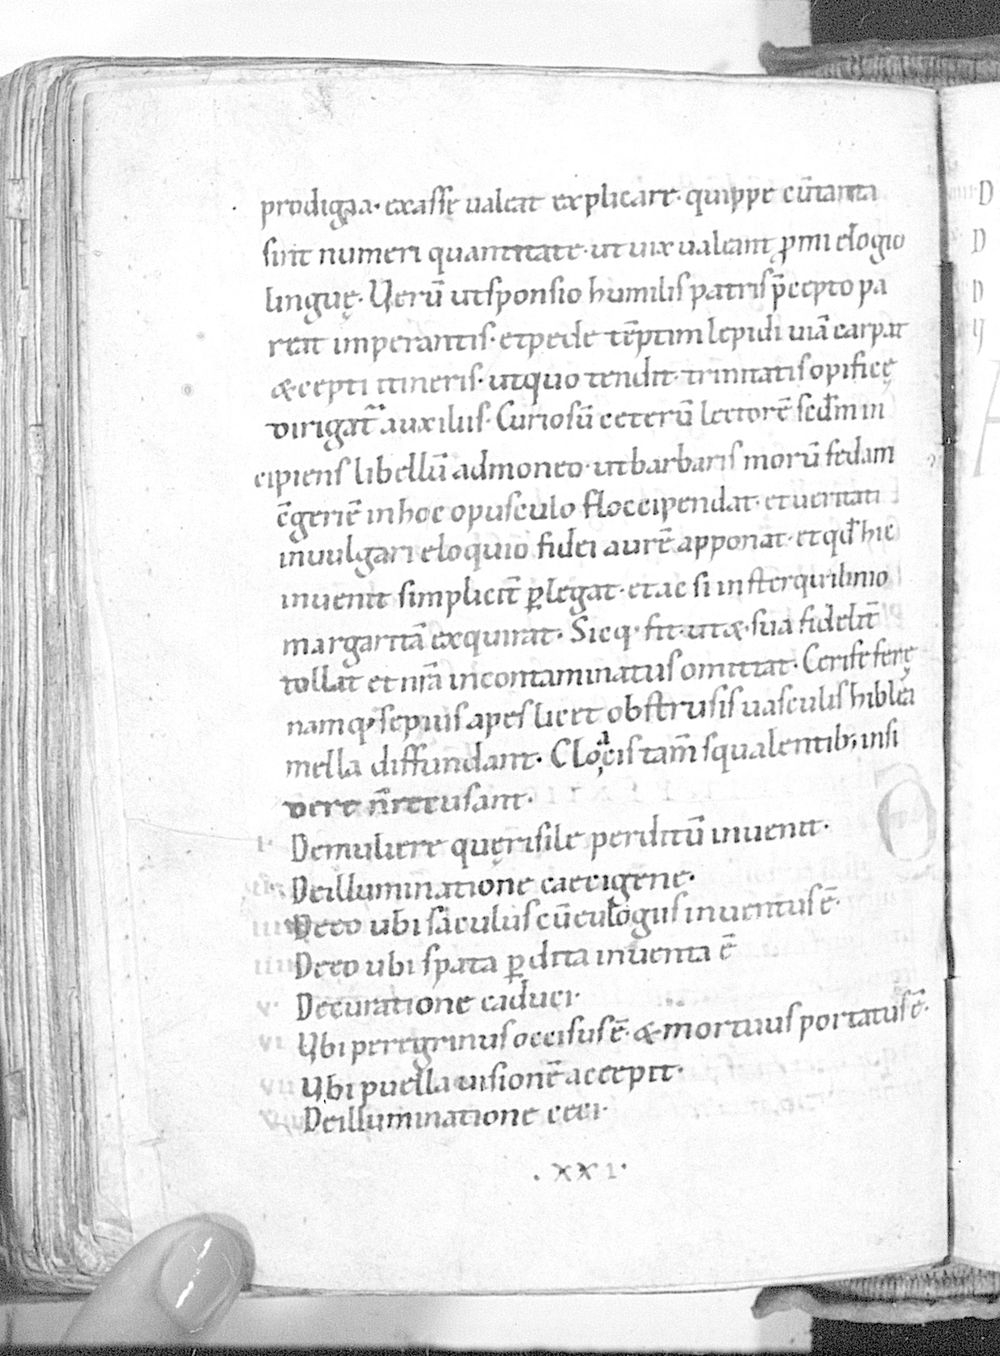 prodigia· exasse ualeat explicare· quippe cū tanta
sint numeri quantitate· ut uix ualeant ꝓmi elogio
linguę· Verū ut sponsio humilis patris p̄cepto pa
reat imperantis· et pede tēptim lepidi uiā carpat
& cepti itineris· utquo tendit· trinitatis opificę
dirigat᷑ auxiliis· Curiosū ceterū lectorē sed m̄ in
cipiens libellū admoneo· ut barbaris morū fedam
c̄geriē in hoc opusculo floccipendat· et ueritati
inuulgari eloquio fidei aurē apponat· et qd̄ hic
inuenit simplicit̄ ꝑlegat· et ac si in sterquilinio
margaritā exquirat· Sicq· fit· ut & sua fidelit̄
tollat et nr̄a incontaminatus omittat· Ceris ferę
namq· sepius apes licet obstrusis uasculis hiblea
mella diffundant· Cloacis tam̄ squalentib; insi
dere n̄ recusant·
I· De muliere quę risile perditū inuenit·
II· De illuminatione caecigene·
III De eo ubi saculus cū culogus inuentus ē·
IIII De eo ubi spata ꝑdita inuenta ē
V· De curatione caduci·
VI Vbi peregrinus occisus ē· & mortuus portatus ē·
VII Vbi puella uisionē accepit·
VIII De illuminatione ceci·
·XXI·
D
D
D
V
A